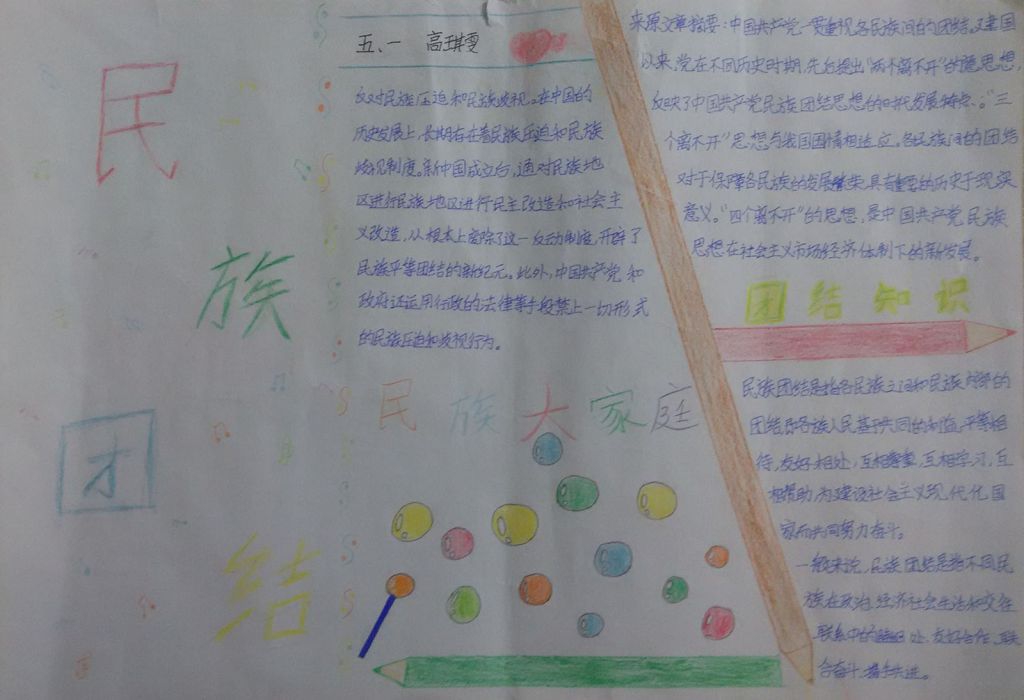 民
族
团
结
五、一 高琪雯
反对民族压迫和民族歧视。在中国的
历史发展上,长期存在着民族压迫和民族
歧视制度。新中国成立后,通对民族地
区进行民族地区进行民主改造和社会主
义改造,从根本上废除了这一反动制度,开辟了
民族平等团结的新纪元。此外,中国共产党和
政府还运用行政的法律等手段禁止一切形式
的民族压迫和歧视行为。
民族大家庭
来源文章摘要:中国共产党一贯重视各民族间的团结。建国
以来,党在不同历史时期,先后提出"两个离不开"的思想,
反映了中国共产党民族团结思想的时代发展特点。"三
个离不开"思想与我国国情相适应。各民族间的团结
对于保障各民族的发展繁荣具有重要的历史于现实
意义。"四个离不开"的思想,是中国共产党民族
思想在社会主义市场经济体制下的新发展。
团结知识
民族团结是指各民族之间和民族内部的
团结。即各族人民基于共同的利益,平等相
待,友好相处,互相尊重,互相学习,互
相帮助,为建设社会主义现代化国
家而共同努力奋斗。
一般来说,民族团结是指不同民
族在政治经济社会生活和交往
联系中的处、友好合作、联
合奋斗、携手共进。